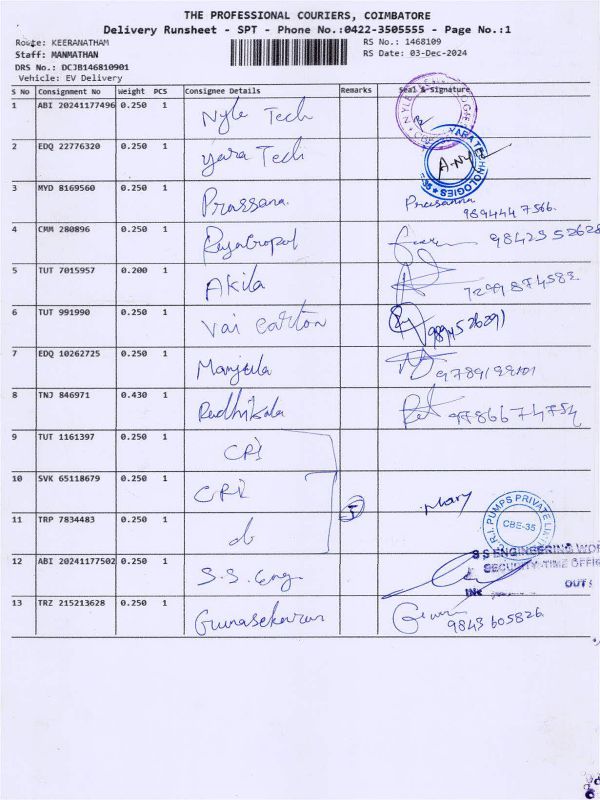 THE PROFESSIONAL COURIERS, COIMBATORE
Delivery Runsheet - SPT - Phone No.:0422-3505555 - Page No.:1
Route: KEERANATHAM
RS No.: 1468109
Staff: MANMATHAN
RS Date: 03-Dec-2024
DRS No.: DC3B146810901
Vehicle: EV Delivery
S No Consignment No Weight PCS Consignee Details Remarks Seal & Signature
1 ABI 20241177496 0.250 1 Nyle Tech
2 EDQ 22776320 0.250 1 Yara Tech YARA TECHNOLOGIES
3 MYD 8169560 0.250 1 Prassana Prassanna
4 CMM 280896 0.250 1 RajaGopal
5 TUT 7015957 0.200 1 Akila
6 TUT 991990 0.250 1 Vai Carton
7 EDQ 10262725 0.250 1 Manjula
8 TNJ 846971 0.430 1 Radhikala
9 TUT 1161397 0.250 1 CRI
10 SVK 65118679 0.250 1 CRI Mary
11 TRP 7834483 0.250 1 do C.R.I. PUMPS PRIVATE CBE-35
12 ABI 20241177502 0.250 1 S.S. Eng. S S ENGINEERING
SECURITY-TIME
OUT:
13 TRZ 215213628 0.250 1 Gunasekaran
9843605826